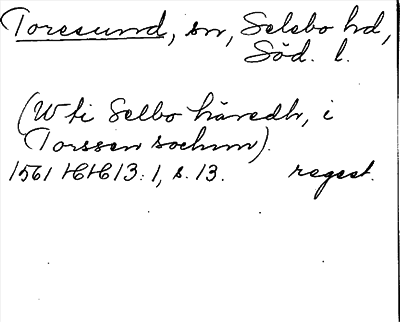 Toresund, sn, Selebo hd,
Söd. l.
(W ti Selbo häredh, i
Torssen sochnn).
1561 HH 13:1, s. 13. regest.